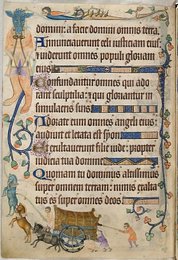 domini: a facie domini omnis terra.
Annunciauerunt celi iusticiam eius:
⁊ uiderunt omnes populi gloriam
eius
Confundantur omnes qui ado
rant sculptilia: ⁊ qui gloriantur in
simulacris suis
Adorate eum omnes angeli eius:
audiuit et letata est syon
Et exultauerunt filie iude: propter
iudicia tua domine
Quoniam tu dominus altissimus
super omnem terram: nimis exalta
tus es super omnes deos.